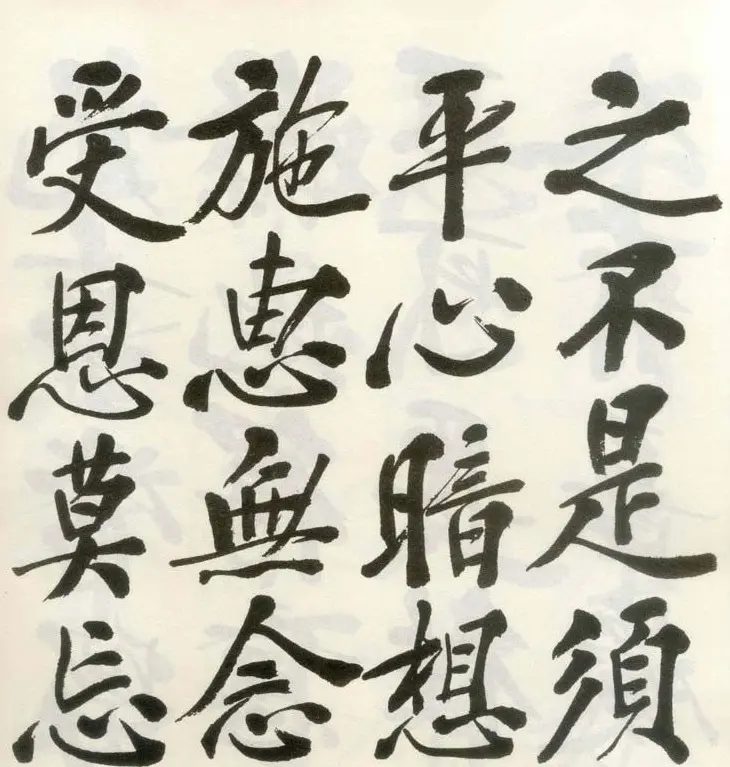 之不是須
平心暗想
施惠無念
受恩莫忘